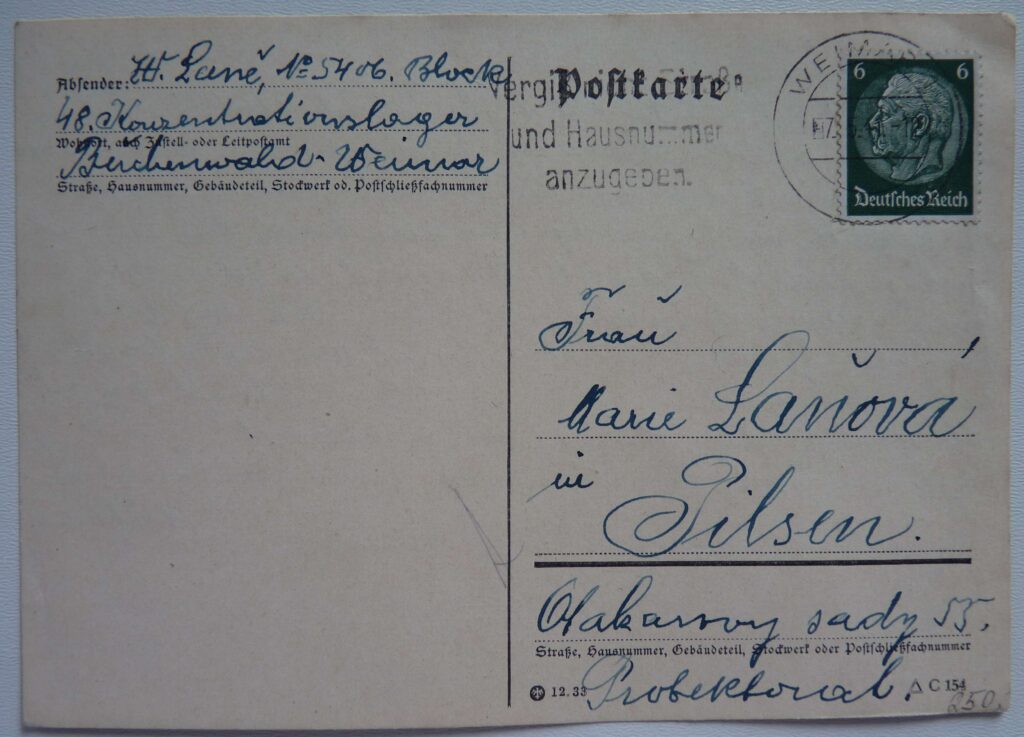 Absender: W. Laně, № 5406. Block
48. Konzentrationslager
Wohnort, auch Zustell- oder Leitpostamt
Buchenwald-Weimar
Straße, Hausnummer, Gebäudeteil, Stockwerk od. Postschließfachnummer
Postkarte
und Hausnummer
anzugeben.
WEIMAR
6 6
Deutsches Reich
Frau
Marie Laňová
in
Pilsen.
Otakarovy sady 55.
Straße, Hausnummer, Gebäudeteil, Stockwerk oder Postschließfachnummer
12.33 Protektorat. C 154
250.